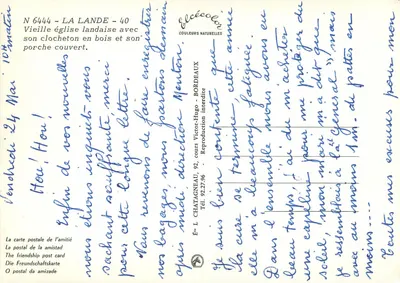 N 6444 – LA LANDE – 40
Vieille église landaise avec
son clocheton en bois et son
porche couvert.
elcécolor
COULEURS NATURELLES
La carte postale de l'amitié
La postal de la amistad
The friendship post card
Die Freundschaftskarte
O postal da amizade
Ets E. CHATAGNEAU, 92, cours Victor-Hugo - BORDEAUX
Tél. 92.27.96 Reproduction interdite
Vendredi 24 Mai 10h matin
Hou! Hou!
Enfin de vos nouvelles
nous étions inquiets vous
sachant souffrante merci
pour cette longue lettre.
Nous revenons de faire enregistrer
nos bagages nous partons demain
après midi direction Menton.
Je suis bien contente que
la cure se termine, cette année
elle m'a beaucoup fatiguée.
Dans l'ensemble nous avons eu
beau temps, j'ai dû m'acheter
une capeline pour me protéger du
soleil, mon frère m'a dit que
je ressemblais à la "General"
avec au moins 1m de pattes
moins....
Toutes mes excuses pour mon